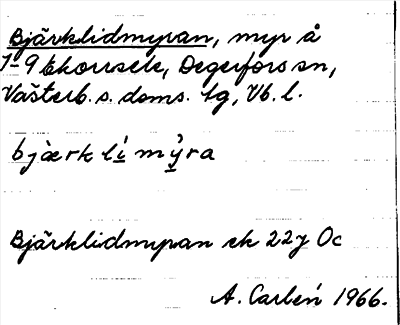 Bjärklidmyran, myr å
1-9 Ekorrsele, Degerfors sn,
Västerb. s. doms. tg, Vb. l.
bjærklimýra
Bjärklidmyran ek 22J Oc
A. Carlén 1966.